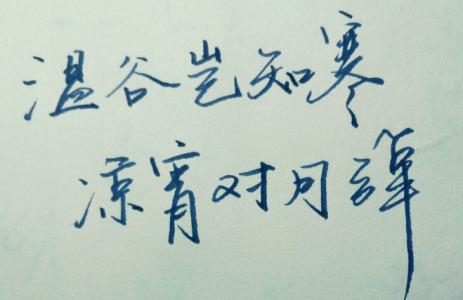 温谷岂知寒
凉宵对月弹